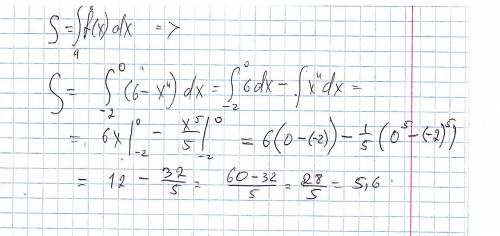 S = ∫₄ f(x) dx =>
S = ∫₋₂⁰ (6 - x⁴) dx = ∫₋₂⁰ 6 dx - ∫ x⁴ dx =
= 6x |₋₂⁰ - x⁵/5 |₋₂⁰ = 6(0 - (-2)) - 1/5 (0⁵ - (-2)⁵)
= 12 - 32/5 = 60 - 32/5 = 28/5 = 5,6